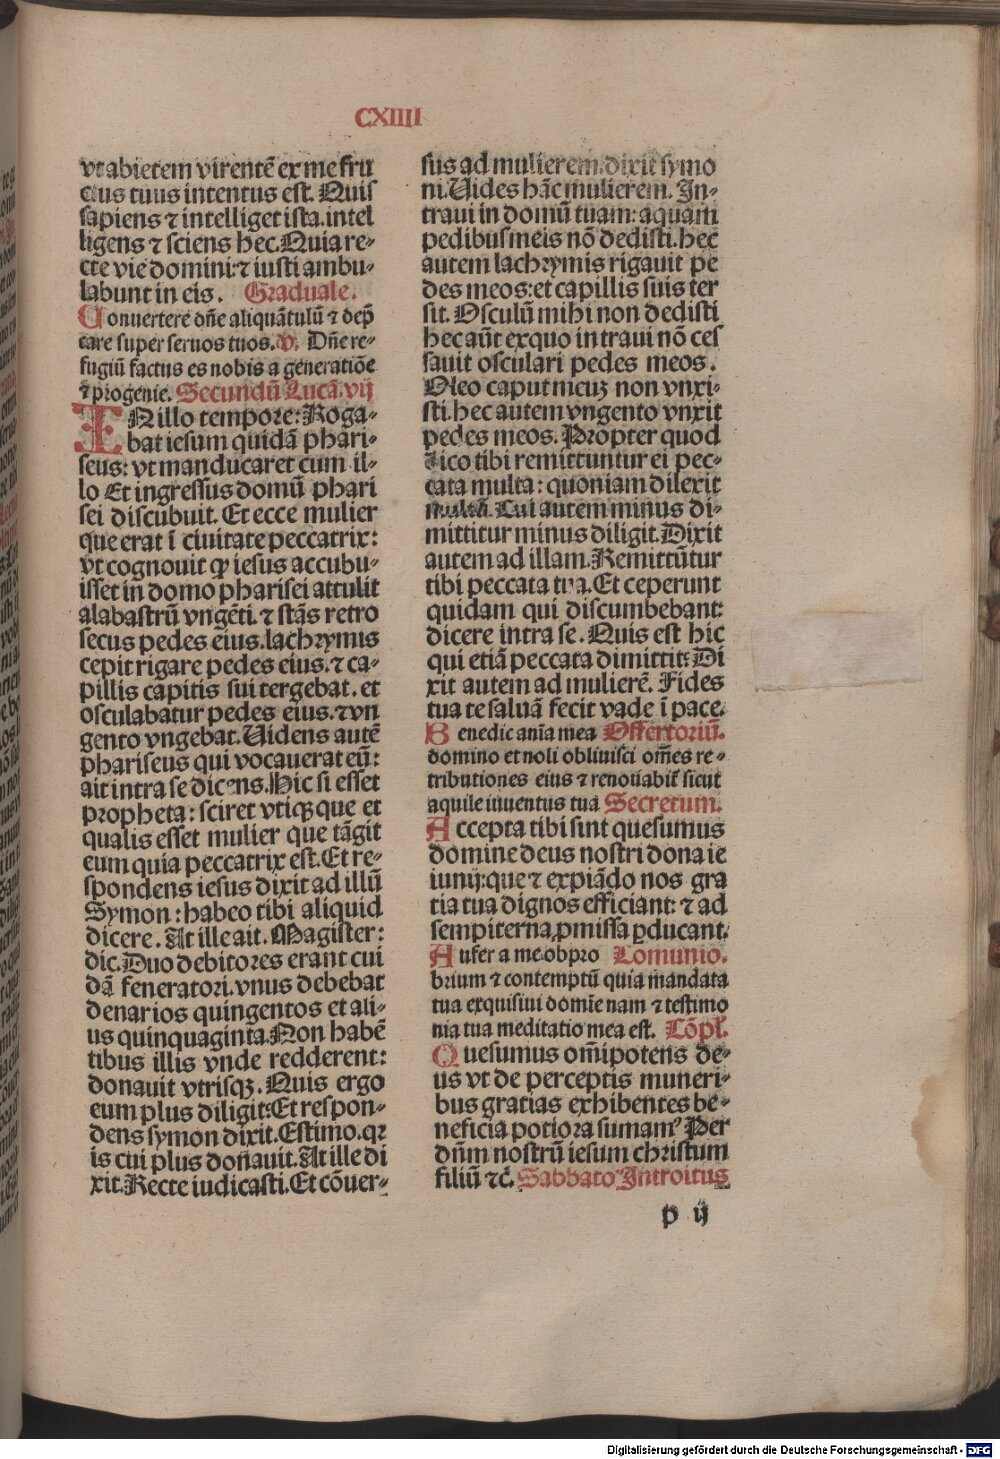 CXIIII
vt abietem virentē ex me fru
ctus tuus intentus est. Quis
sapiens ⁊ intelliget ista. intel
ligens ⁊ sciens hec. Quia re-
cte vie domini: ⁊ iusti ambu-
labunt in eis. Graduale.
Conuertere dn̄e aliquātulū ⁊ dep̄
care super seruos tuos. v. Dn̄e re-
fugiū factus es nobis a generatiōe
⁊ progenie. Secundū Lucā. vij
IN illo tempore: Roga-
bat iesum quidā phari-
seus: vt manducaret cum il-
lo Et ingressus domū phari
sei discubuit. Et ecce mulier
que erat ī ciuitate peccatrix:
vt cognouit ꝙ iesus accubu-
isset in domo pharisei attulit
alabastrū vngēti. ⁊ stās retro
secus pedes eius. lachrymis
cepit rigare pedes eius. ⁊ ca-
pillis capitis sui tergebat. et
osculabatur pedes eius. ⁊ vn
gento vngebat. Uidens autē
phariseus qui vocauerat eū:
ait intra se dicens. Hic si esset
propheta: sciret vtiqꝫ que et
qualis esset mulier que tāgit
eum quia peccatrix est. Et re-
spondens iesus dixit ad illū
Symon: habeo tibi aliquid
dicere. At ille ait. Magister:
dic. Duo debitores erant cui
dā feneratori. vnus debebat
denarios quingentos et ali-
us quinquaginta. Non habē
tibus illis vnde redderent:
donauit vtrisqꝫ. Quis ergo
eum plus diligit: Et respon-
dens symon dixit. Estimo. qr
is cui plus donauit. At ille di
xit. Recte iudicasti. Et cōuer-
sus ad mulierem. dixit symo
ni. Uides hāc mulierem. In-
traui in domū tuam: aquam
pedibus meis nō dedisti. hec
autem lachrymis rigauit pe
des meos: et capillis suis ter
sit. Osculū mihi non dedisti
hec aūt ex quo intraui nō ces
sauit osculari pedes meos.
Oleo caput meuꝫ non vnxi-
sti. hec autem vngento vnxit
pedes meos. Propter quod
dico tibi remittuntur ei pec-
cata multa: quoniam dilexit
multū. Cui autem minus di-
mittitur minus diligit. Dixit
autem ad illam. Remittūtur
tibi peccata tua. Et ceperunt
quidam qui discumbebant:
dicere intra se. Quis est hic
qui etiā peccata dimittit: Di
xit autem ad mulierē. Fides
tua te saluā fecit vade ī pace.
Benedic anīa mea Offertoriū.
domino et noli obliuisci om̄es re-
tributiones eius ⁊ renouabit̄ sicut
aquile iuuentus tua Secretum.
Accepta tibi sint quesumus
domine deus nostri dona ie
iunij: que ⁊ expiādo nos gra
tia tua dignos efficiant: ⁊ ad
sempiterna ꝓmissa ꝑducant.
Aufer a me obpro Comunio.
brium ⁊ contemptū quia mandata
tua exquisiui domīe nam ⁊ testimo
nia tua meditatio mea est. Cōpl̄.
Quesumus om̄ipotens de-
us vt de perceptis muneri-
bus gratias exhibentes be-
neficia potiora sumamꝰ Per
dn̄m nostrū iesum christum
filiū ⁊c̄. Sabbato Introitus
p ij
Digitalisierung gefördert durch die Deutsche Forschungsgemeinschaft - DFG